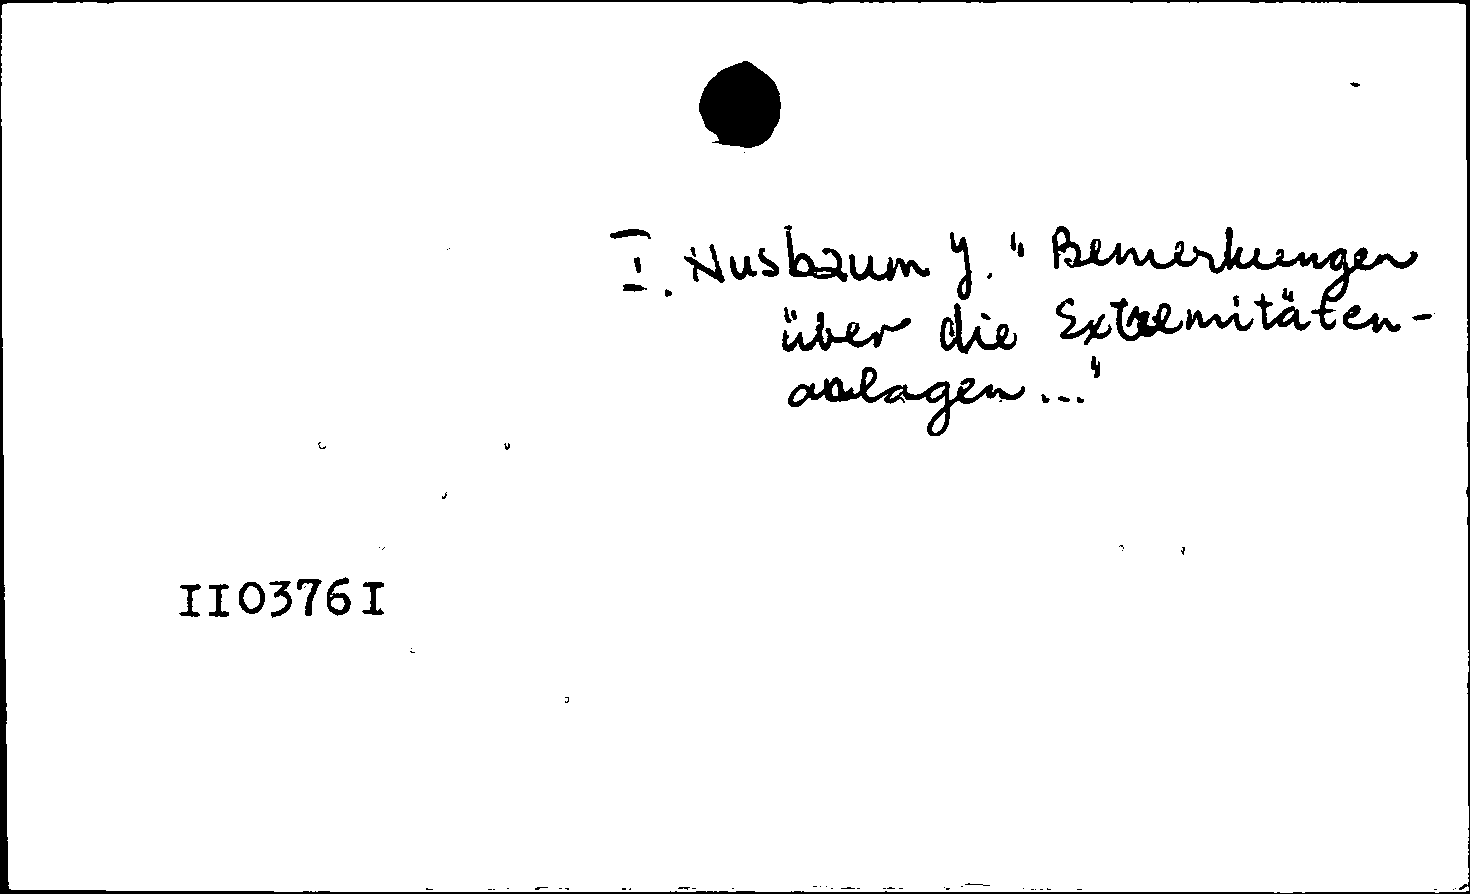 I. Nusbaum J. "Bemerkungen
über die Extremitäten-
anlagen..."
II0376I